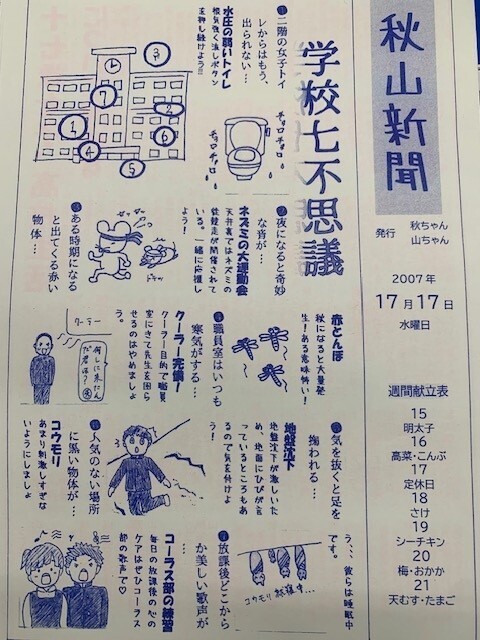 秋山新聞
発行
秋ちゃん
山ちゃん
2007年
17月17日
水曜日
週間献立表
15
明太子
16
高菜・こんぶ
17
定休日
18
さけ
19
シーチキン
20
梅・おかか
21
天むす・たまご
学校七不思議
①二階の女子トイ
レからはもう、
出られない…
水圧の弱いトイレ
根気強く流しボタン
を押し続けよう!!
チョロチョロ
チョロチョロ
③
⑦
②
①
⑥
④
⑤
②夜になると奇妙
な音が…
ネズミの大運動会
天井裏ではネズミの
徒競走が開催されて
いる。一緒に応援し
よう!
③ある時期になる
と出てくる赤い
物体…
赤とんぼ
秋になると大量発
生!ある意味怖い!
④職員室はいつも
寒気がする…
クーラー完備!
クーラー目的で職員
室にきて先生を困ら
せるのはやめましょ
う。
クーラー
何しに来たん
だ君は?
⑤気を抜くと足を
掬われる…
地盤沈下
地盤沈下が激しいた
め、地面にひびが入
っているところもあ
るので気を付けよ
う!
⑥人気のない場所
に黒い物体が…
コウモリ
あまり刺激しすぎな
いようにしましょ
う、、、彼らは睡眠中
です。
コウモリ就寝中…
⑦放課後どこから
か美しい歌声が
コーラス部の練習
毎日の放課後の心の
ケアはぜひコーラス
部の歌声で♡